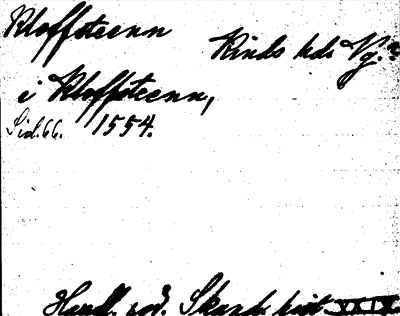 Kloffsteenn
Kinds hds Vg.
i Kloffsteenn,
Sid. 66. 1554.
Handl. rör. Skand. hist. XXIX